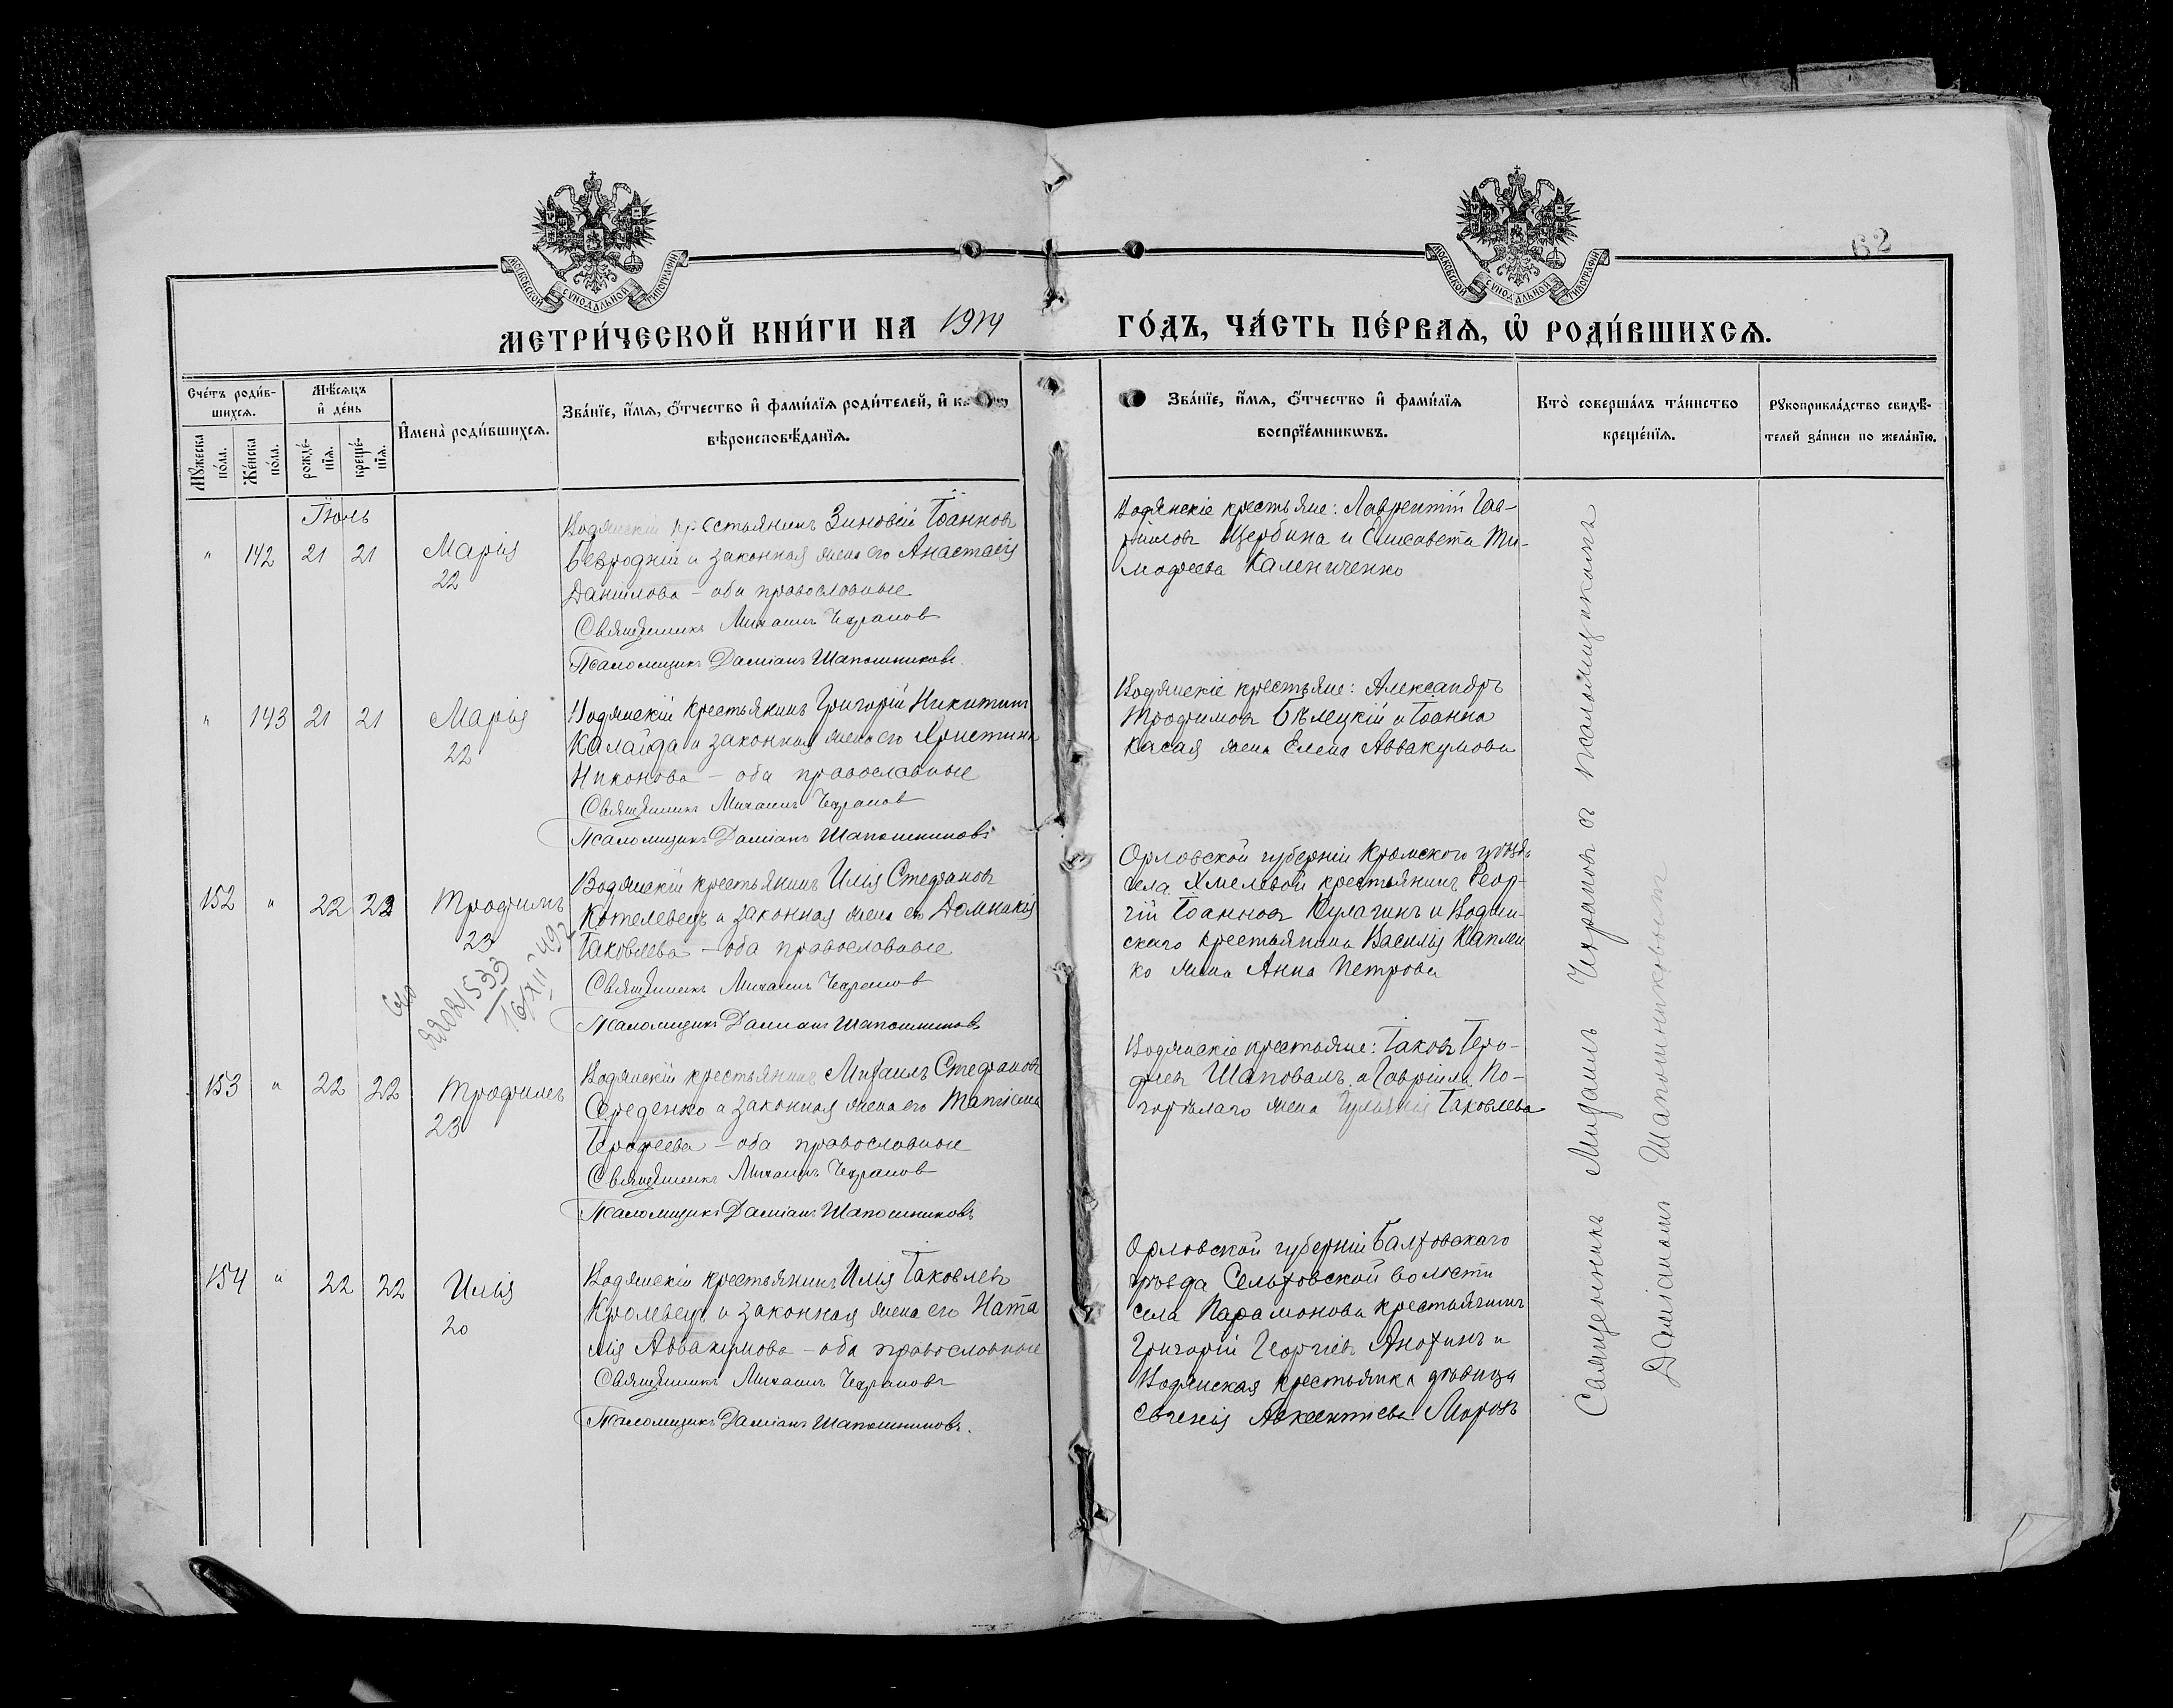 62
МОСКОВСКОЙ СУНОДАЛЬНОЙ ТИПОГРАФІИ
МОСКОВСКОЙ СУНОДАЛЬНОЙ ТИПОГРАФІИ
МЕТРИ́ЧЕСКОЙ КНИ́ГИ НА 1914 ГО́ДЪ, ЧА́СТЬ ПЕ́РВАѦ, Ѡ҆ РОДИ́ВШИХСѦ.
Сче́тъ роди́в-
шихсѧ.
Мꙋ́жеска по́ла.
Же́нска по́ла.
Мѣ́сѧцъ
и҆ де́нь
рожде́-
нїѧ.
креще́-
нїѧ.
И҆мена̀ роди́вшихсѧ.
Зва́нїе, и҆́мѧ, ѻ҆́тчество и҆ фами́лїѧ роди́телей, и҆
вѣроисповѣ́данїѧ.
Зва́нїе, и҆́мѧ, ѻ҆́тчество и҆ фами́лїѧ
воспрїе́мникѡвъ.
Кто̀ соверша́лъ та́инство
креще́нїѧ.
Рꙋкоприкла́дство свидѣ́-
телей за́писи по жела́нїю.
Іюль
" 142 21 21 Марія
22
Водянскій крестьянинъ Зиновій Іоанновъ
Безродній и законная жена его Анастасія
Даніилова – оба православные
Священникъ Михаилъ Чехрановъ
Псаломщикъ Даміанъ Шапошниковъ.
Водянскіе крестьяне: Лаврентій Гав-
ріиловъ Щербина и Елисавета Ти-
мофеева Калениченко
" 143 21 21 Марія
22
Водянскій крестьянинъ Григорій Никитинъ
Калайда и законная жена его Христина
Никонова – оба православные
Священникъ Михаилъ Чехрановъ
Псаломщикъ Даміанъ Шапошниковъ
Водянскіе крестьяне: Александръ
Трофимовъ Бѣлецкій и Іоанна
Касая жена Елена Аввакумова
152 " 22 22 Трофимъ
23
16/XII 492
Водянскій крестьянинъ Илія Стефановъ
Котелевецъ и законная жена его Домнакія
Іаковлева – оба православные
Священникъ Михаилъ Чехрановъ
Псаломщикъ Даміанъ Шапошниковъ
Орловской губерніи Кромского уѣзда
села Хмелевой крестьянинъ Геор-
гій Іоанновъ Кулагинъ и Водян-
скаго крестьянина Василія Каплен
ко жена Анна Петрова
153 " 22 22 Трофимъ
23
Водянскій крестьянинъ Михаилъ Стефановъ
Середенко и законная жена его Татіана
Іерофеева – оба православные
Священникъ Михаилъ Чехрановъ
Псаломщикъ Даміанъ Шапошниковъ
Водянскіе крестьяне: Іаковъ Іеро-
феевъ Шаповалъ и Гавріила По-
горѣлаго жена Іуліанія Іаковлева
154 " 22 22 Илія
20
Водянскій крестьянинъ Илія Іаковлевъ
Кролевецъ и законная жена его Ната
лія Аввакумова – оба православные
Священникъ Михаилъ Чехрановъ
Псаломщикъ Даміанъ Шапошниковъ.
Орловской губерніи Балховскаго
уѣзда Сельховской волости
села Парамонова крестьянинъ
Григорій Георгіевъ Анохинъ и
Водянская крестьянка дѣвица
Евгенія Авксентіева Морозъ
Священникъ Михаилъ Чехрановъ съ псаломщикомъ
Даміаномъ Шапошниковымъ